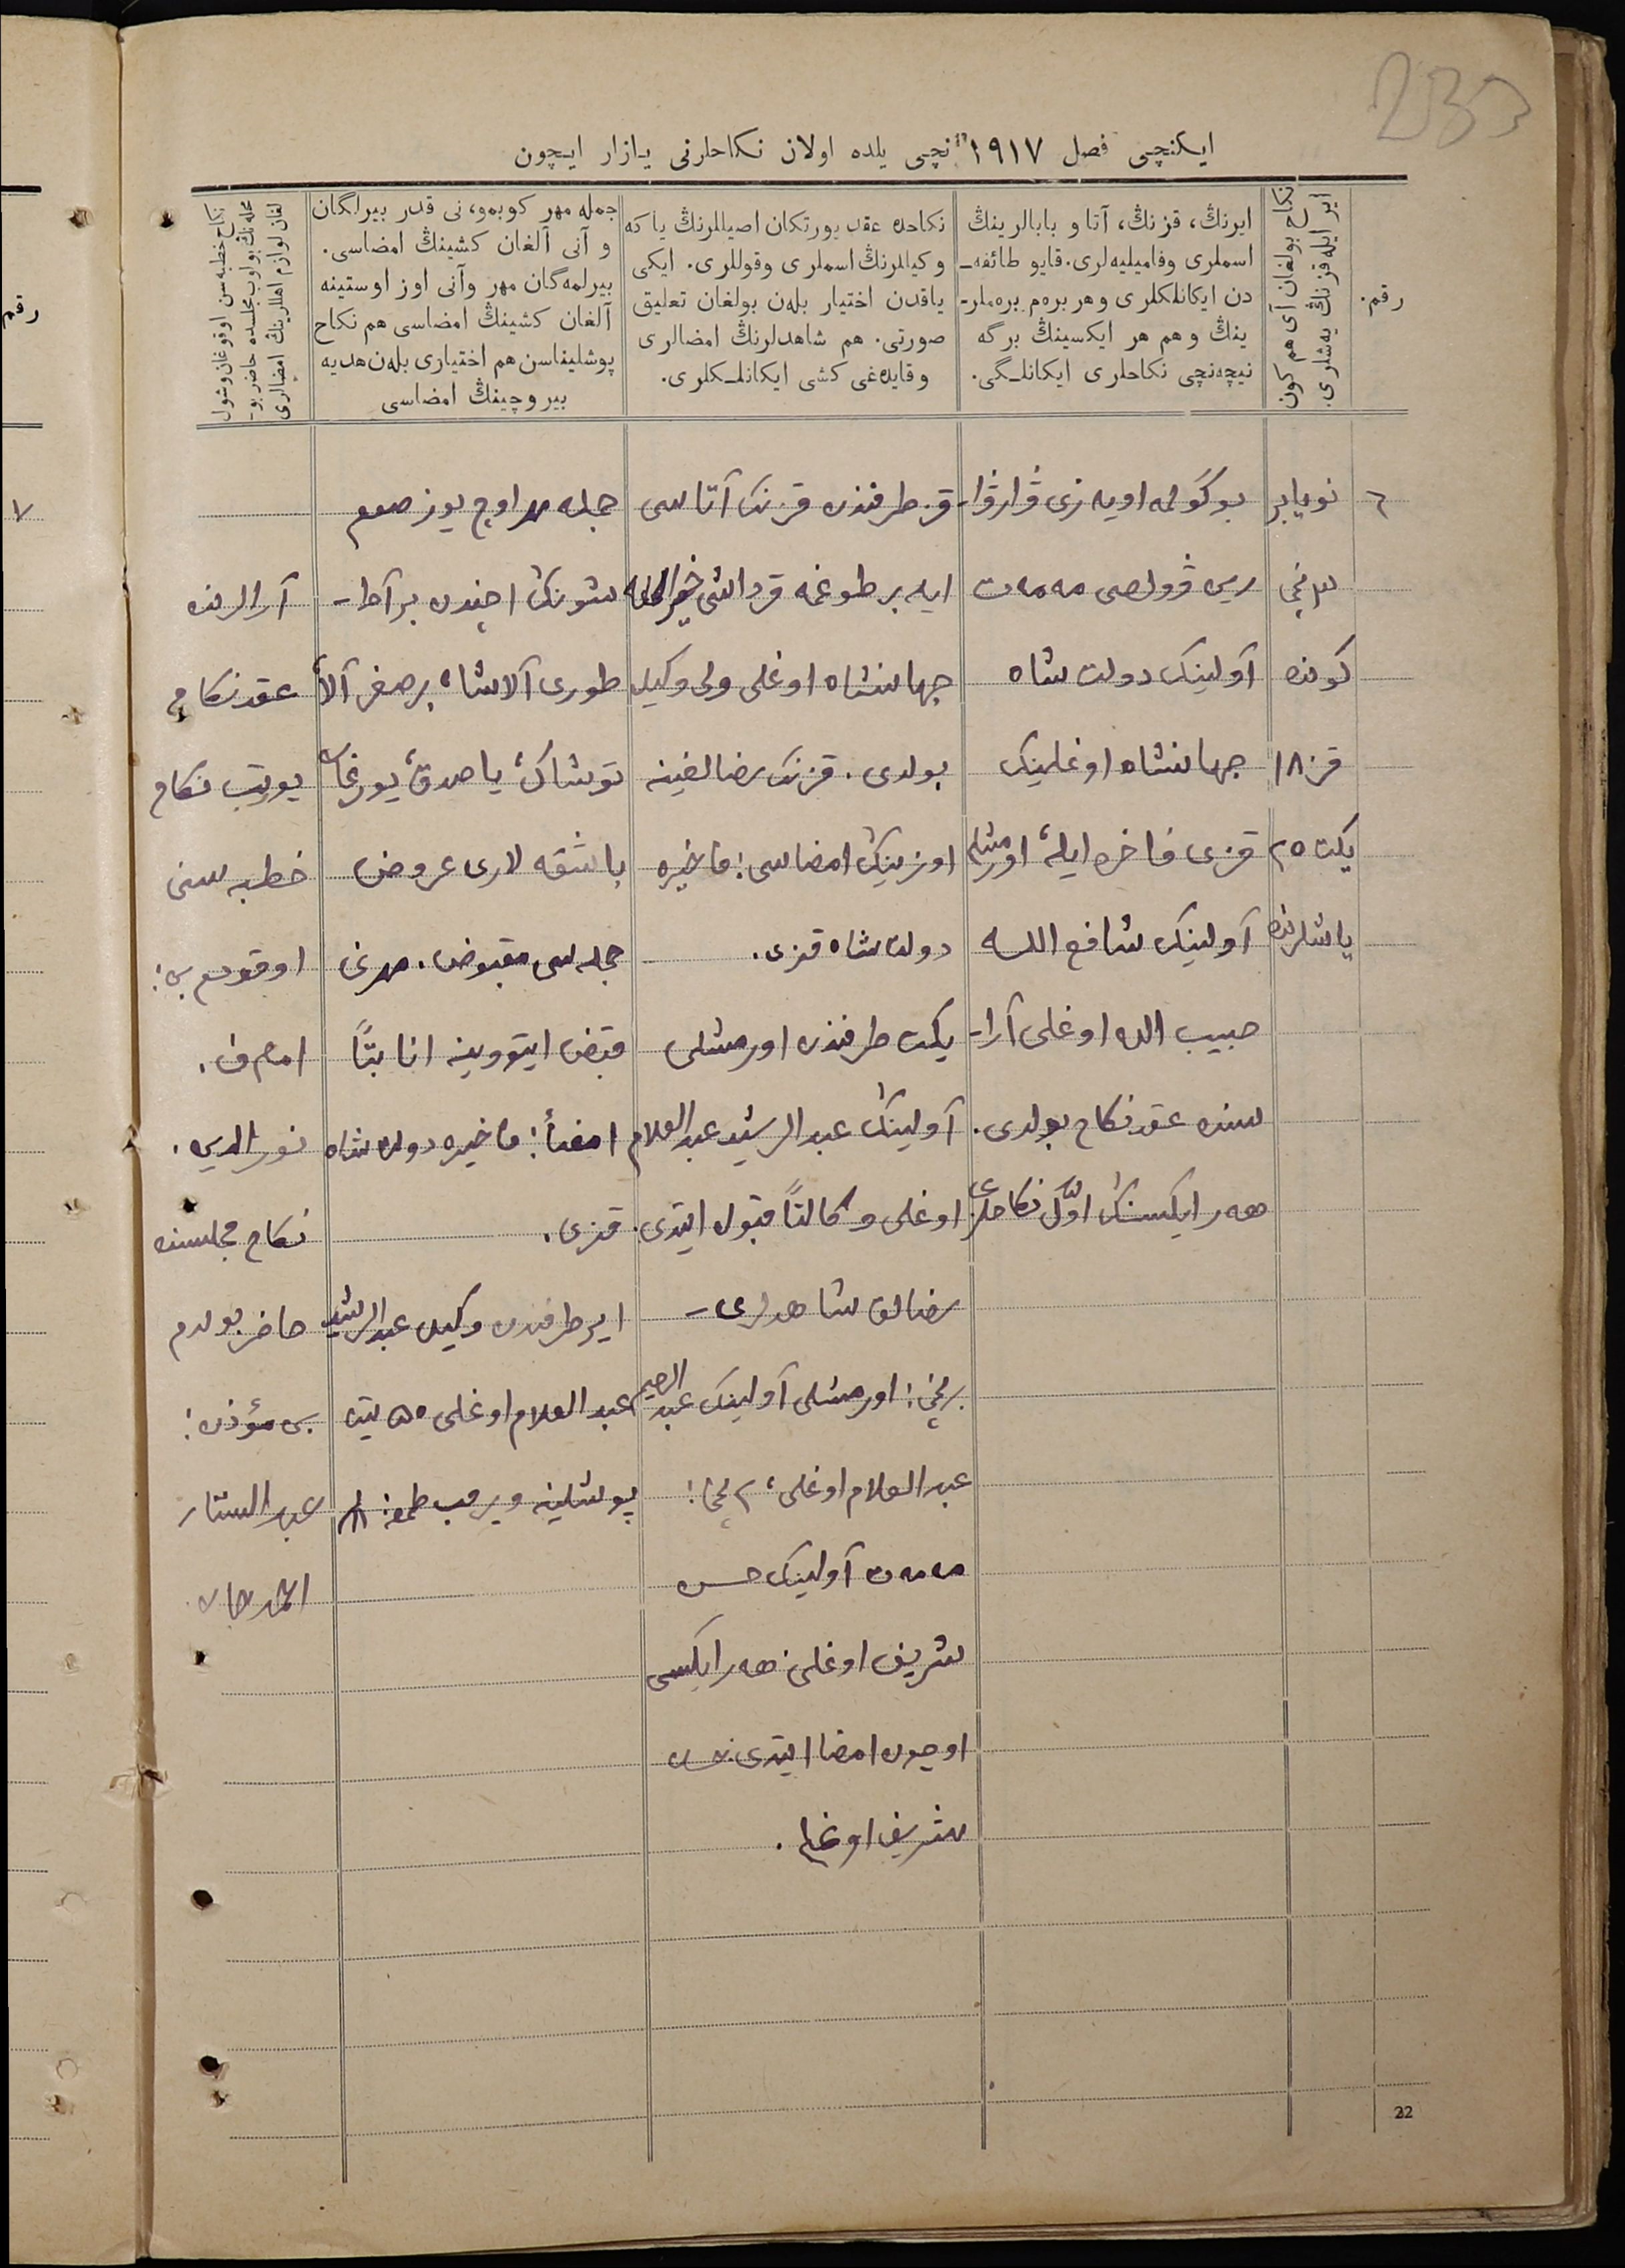 233
ایکنچی فصل ١٩١٧ نچی یلده اولان نکاحلرنی یازار ایچون
رقم.
نکاح بولغان آی هم کون
ایر ایله قزنڭ یه‌شلری.
ایرنڭ، قزنڭ، آتا و بابالرینڭ
اسملری وفامیلیه‌لری. قایو طائفه‌ـ
دن ایکانلکلری وهر بره‌م بره‌ملرـ
ینڭ و هم هر ایکسینڭ برگه
نیچه‌نچی نکاحلری ایکانلـگی.
نکاحده عقد یورتکان اصیللرنڭ یا که
وکیللرنڭ اسملری وقوللری. ایکی
یاقدن اختیار بله‌ن بولغان تعلیق
صورتی. هم شاهدلرنڭ امضالری
وقایده‌غی کشی ایکانلـکلری.
جمله مهر کوبمو، نی قدر بیرلگان
و آنی آلغان کشینڭ امضاسی.
بیرلمه‌گان مهر وآنی اوز اوستینه
آلغان کشینڭ امضاسی هم نکاح
پوشلیناسن هم اختیاری بله‌ن هدیه
بیروچینڭ امضاسی
نکاح خطبه‌سن اوقوغان وشول
محله‌نڭ بولوب مجلسده حاضر بوـ
لغان لوازم اهللرینڭ امضالری
٦
نویابر
٣ نچی
کونده
قز ١٨
یکت ٢٥
یاشلرنده
بوگولمه اویه‌زی ڤارڤاـ
رین ڤولصی مه‌مه‌ت
آولینک دولت شاه
جهانشاه اوغلینک
قزی فاخره ایله، اورمشلی
آولینک شافع الله
حبیب الله اوغلی آراـ
سنده عقد نکاح بولدی.
هه‌ر ایکسنڭ اوّل نکاحلری.
قز طرفندن قزنڭ آتاسی
ایله بر طوغمه قرداشی خیرالله
جهانشاه اوغلی ولی وکیل
بولدی. قزنڭ رضالغینه
اوزینڭ امضاسی: فاخره
دولت شاه قزی.
یکت طرفندن اورمشلی
آولینڭ عبدالرشید عبدالعلام
اوغلی وکالتاً قبول ایتدی.
رضالق شاهدلری ـ
برنچی: اورمشلی آولینک عبد
عبدالعلام اوغلی، ٢ نچی:
مه‌مه‌ت آولینک حسن
شریف اوغلی. هه‌ر ایکسی
اوچون امضا ایتدی: حسن
شریف اوغلی.
جمله مهر اوچ یوز صوم
شونڭ اچندن بر آطـ
طوری آلاشا، بر صغر آلا،
توشاک، یاصدق، یورغان
باشقه لاری عروض
جمله‌سی مقبوض. مهرنی
قبض ایتووینه انابتاً
امضأ: فاخره دولت شاه
قزی.
ایر طرفندن وکیل عبدالرشید
عبدالعلام اوغلی ٥٥ تین
پوشلینه ویروب طمغه:
آرالرنده
عقد نکاح
یورتب نکاح
خطبه سنی
اوقودم بن:
امام ف.
نورالدین.
نکاح مجلسنده
حاضر بولدم
بن مؤذن:
عبدالستار
احمدجان
رقم
٧
22